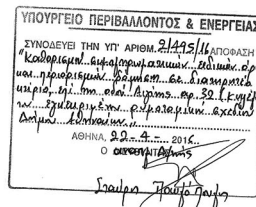 ΥΠΟΥΡΓΕΙΟ ΠΕΡΙΒΑΛΛΟΝΤΟΣ & ΕΝΕΡΓΕΙΑΣ
ΣΥΝΟΔΕΥΕΙ ΤΗΝ ΥΠ' ΑΡΙΘΜ. 21495/16 ΑΠΟΦΑΣΗ
"Καθορισμός ειδικών όρων
και περιορισμών δόμησης σε διατηρητέο
κτίριο, επί της οδού αρ. 32
εγκεκριμένου ρυμοτομικού σχεδίου
Δήμου Αθηναίων"
ΑΘΗΝΑ, 22-4-2016
Ο